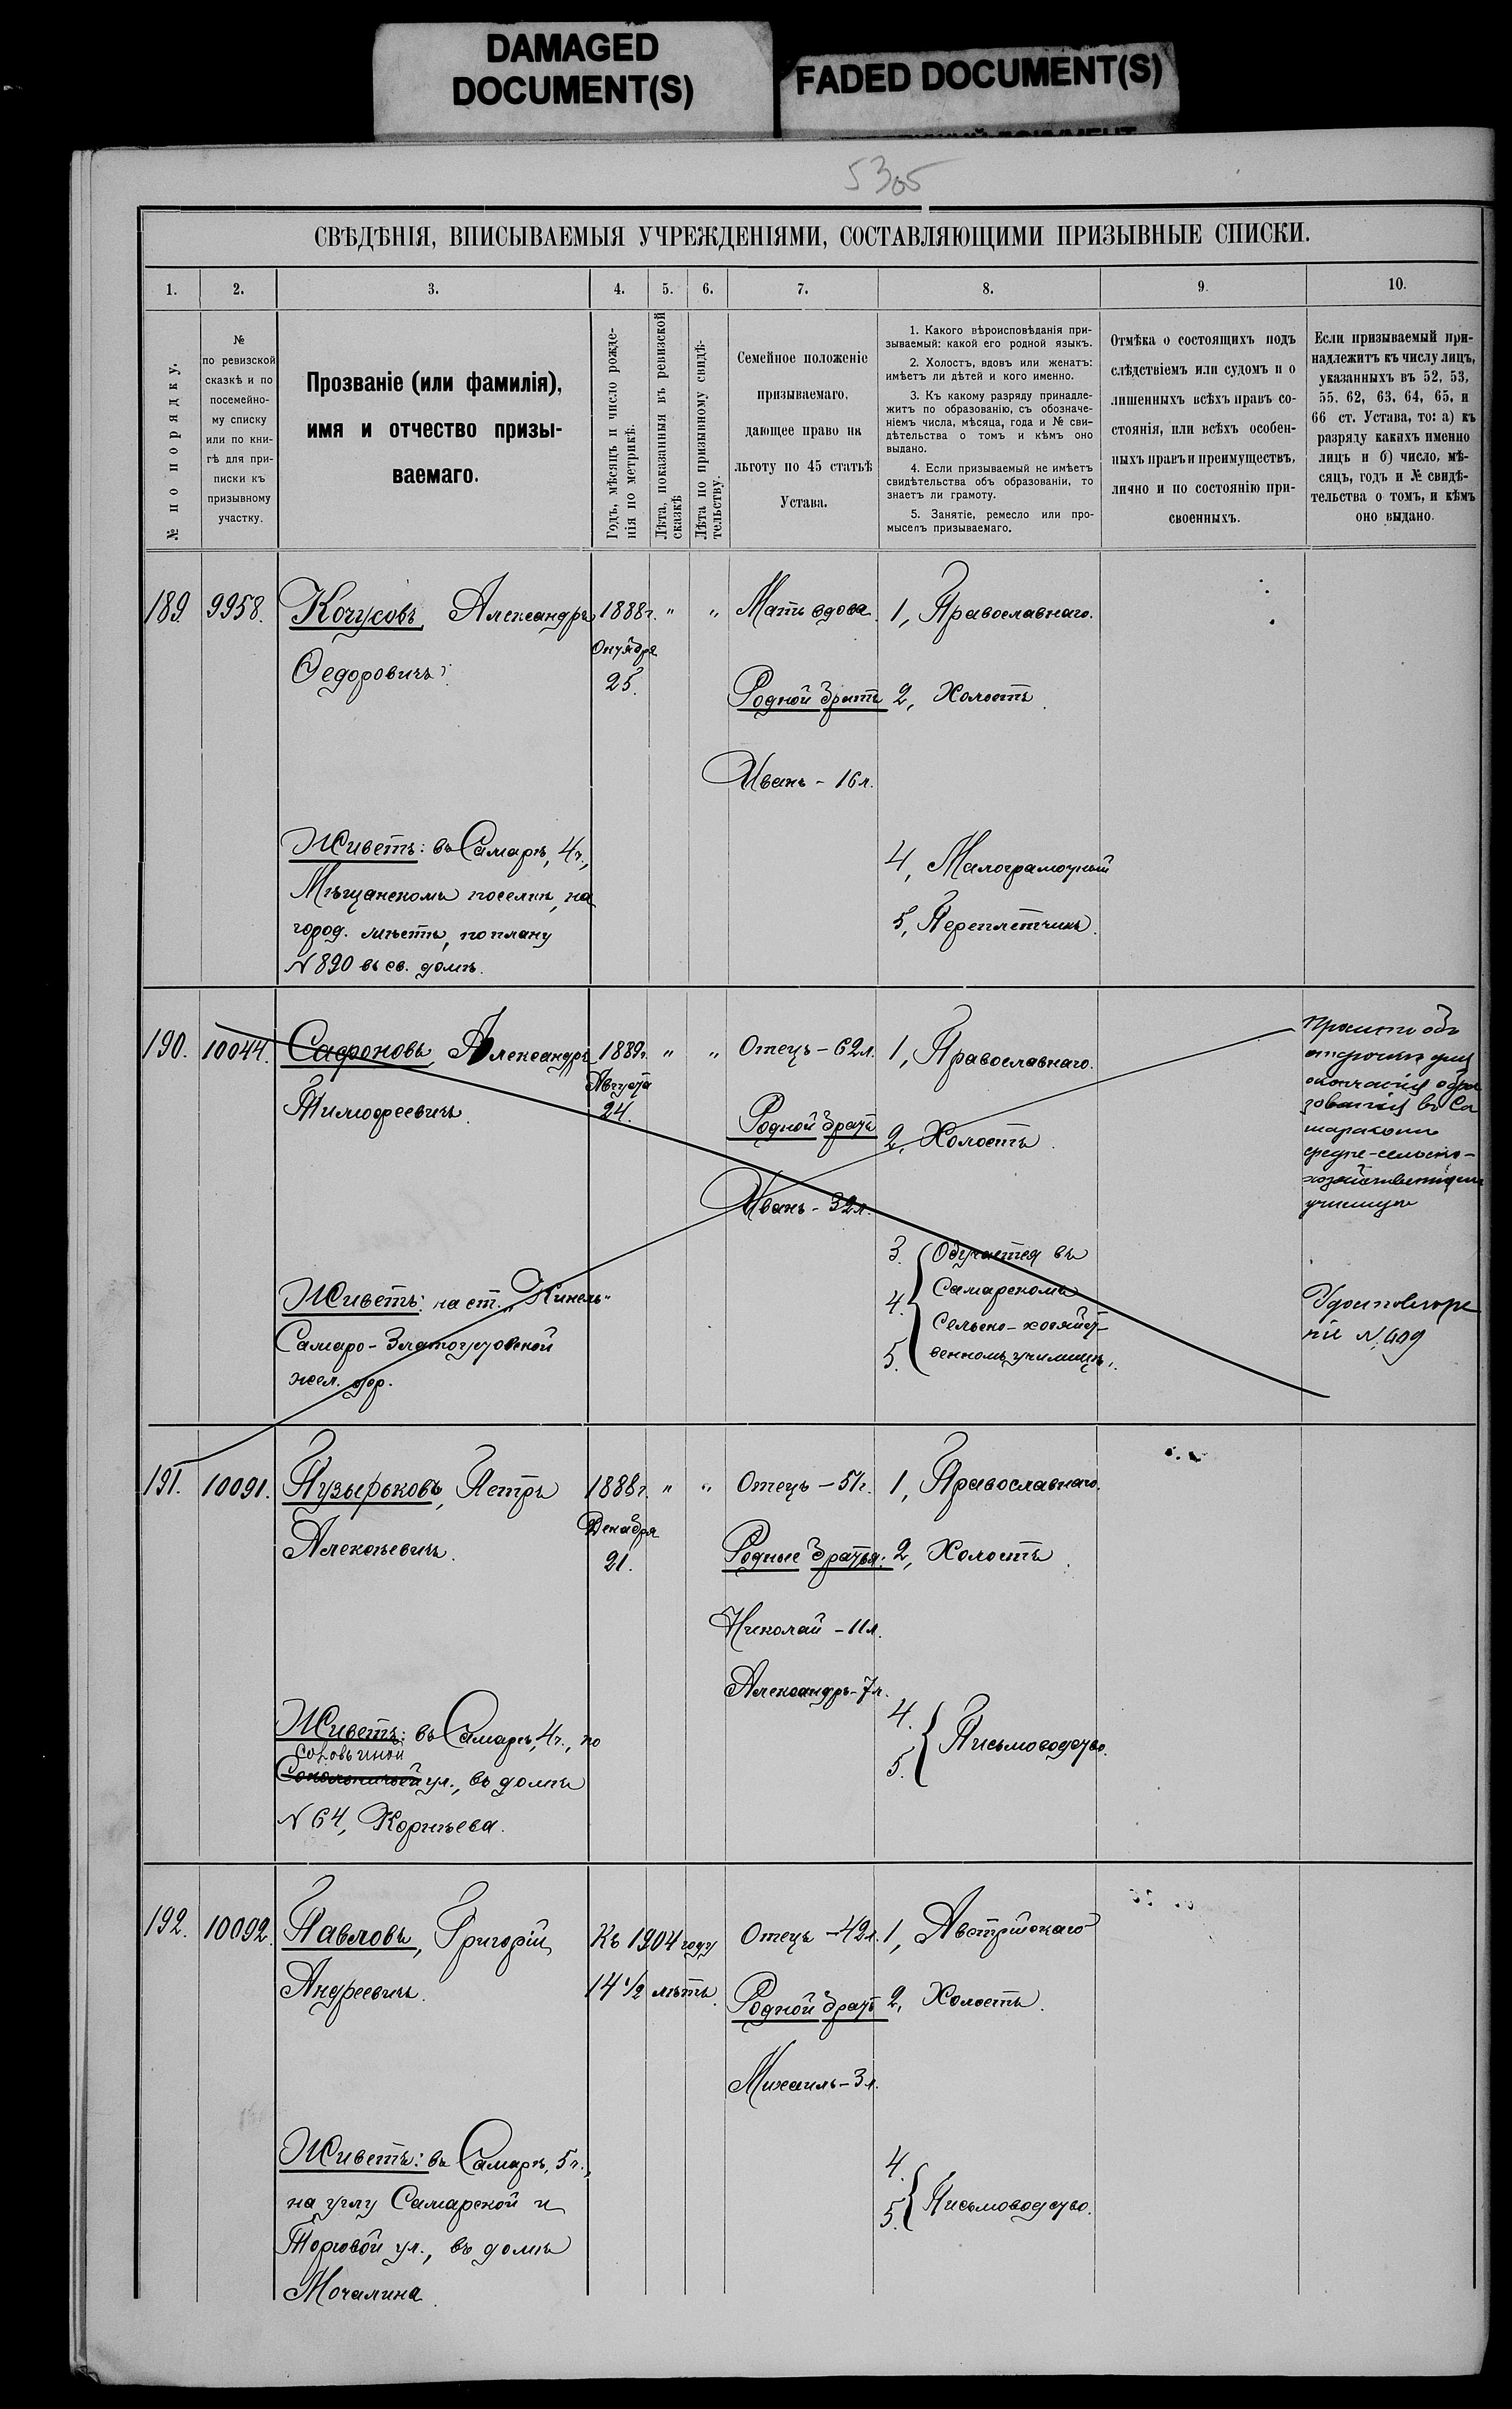 DAMAGED
DOCUMENT(S)
FADED DOCUMENT(S)
5305
СВѢДѢНІЯ, ВПИСЫВАЕМЫЯ УЧРЕЖДЕНІЯМИ, СОСТАВЛЯЮЩИМИ ПРИЗЫВНЫЕ СПИСКИ.
1. 2. 3. 4. 5. 6. 7. 8. 9. 10.
№ по порядку.
№
по ревизской
сказкѣ и по
посемейно-
му списку
или по кни-
гѣ для при-
писки къ
призывному
участку.
Прозваніе (или фамилія),
имя и отчество призы-
ваемаго.
Годъ, мѣсяцъ и число рожде-
нія по метрикѣ.
Лѣта, показанныя въ ревизской
сказкѣ
Лѣта по призывному свидѣ-
тельству.
Семейное положеніе
призываемаго,
дающее право на
льготу по 45 статьѣ
Устава.
1. Какого вѣроисповѣданія при-
зываемый: какой его родной языкъ.
2. Холостъ, вдовъ или женатъ:
имѣетъ ли дѣтей и кого именно.
3. Къ какому разряду принадле-
житъ по образованію, съ обозначе-
ніемъ числа, мѣсяца, года и № сви-
дѣтельства о томъ и кѣмъ оно
выдано.
4. Если призываемый не имѣетъ
свидѣтельства объ образованіи, то
знаетъ ли грамоту.
5. Занятіе, ремесло или про-
мыселъ призываемаго.
Отмѣка о состоящихъ подъ
слѣдствіемъ или судомъ и о
лишенныхъ всѣхъ правъ со-
стоянія, или всѣхъ особен-
ныхъ правъ и преимуществъ,
лично и по состоянію при-
своенныхъ.
Если призываемый при-
надлежитъ къ числу лицъ,
указанныхъ въ 52, 53,
55. 62, 63, 64, 65, и
66 ст. Устава, то: а) къ
разряду какихъ именно
лицъ и б) число, мѣ-
сяцъ, годъ и № свидѣ-
тельства о томъ, и кѣмъ
оно выдано.
189. 9958. Кочусовъ, Александръ 1888г. " " Мать вдова. 1, Православнаго.
Октября
Ѳедоровичъ. 25. Родной братъ 2, Холостъ.
Иванъ - 16 л.
Живетъ: въ Самарѣ, 4ч., 4, Малограмотный
Мѣщанскомъ поселкѣ, на
город. мѣстѣ, по плану 5, Переплетчикъ.
N 890 въ св. домѣ.
190. 10044. Сафроновъ, Александръ 1889г. " " Отецъ - 62 л. 1, Православнаго.
Августа
Тимофеевичъ. 24. Родной братъ 2, Холостъ.
Иванъ - 32 л.
отсрочкѣ для
окончанія обра
зованія въ Са
марскомъ
средне-сельско-
хозяйственномъ
училищѣ
3. Обучается въ
4. Самарскомъ
Сельско-хозяйст-
5. венномъ училищѣ.
Живетъ: на ст. „Кинель"
Самаро-Златоустовской
жел. дор.
Удостовѣре
ніе N. 409
191. 10091. Пузырьковъ, Петръ 1888г. " " Отецъ - 51 г. 1, Православнаго.
Декабря
Алексѣевичъ. 21. Родные братья: 2, Холостъ.
Николай - 11 л.
Александръ - 7 л.
4.
5. Письмоводство.
Живетъ: въ Самарѣ, 4ч., по
Соловьиной
Сокольничьей ул., въ домѣ
N 64, Корнѣева.
192. 10092. Павловъ, Григорій Къ 1904 году Отецъ - 42 л. 1, Австрійскаго
Андреевичъ. 14 1/2 лѣтъ. Родной братъ 2, Холостъ.
Михаилъ - 3 л.
4.
5. Письмоводство.
Живетъ: въ Самарѣ, 5ч.,
на углу Самарской и
Торговой ул., въ домѣ
Мочалина.